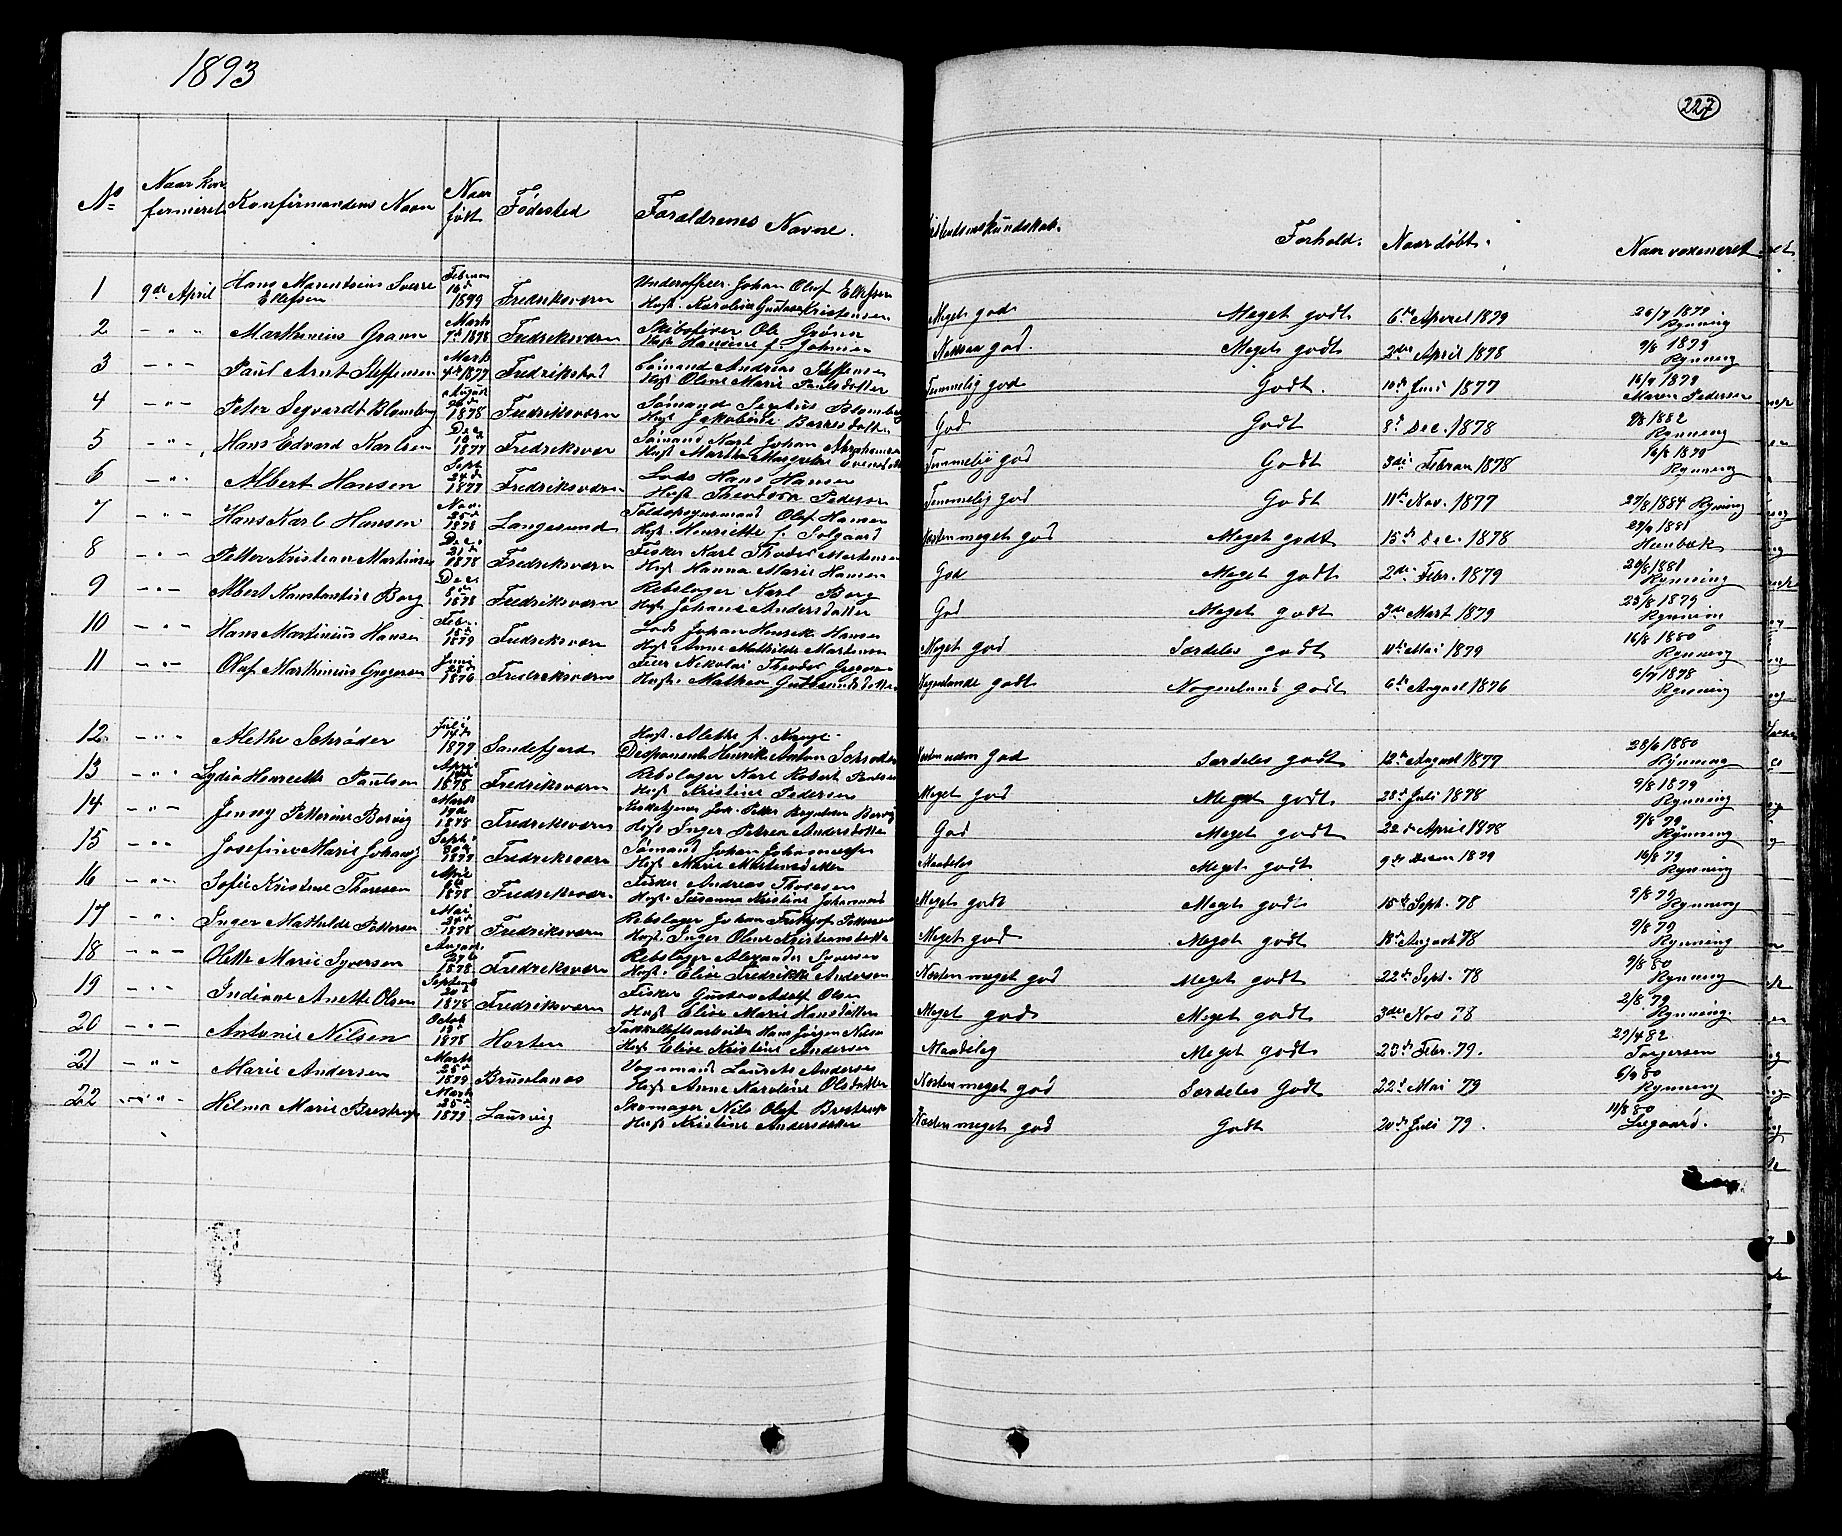 1893
227
No
Naar kon-
firmeret
Konfirmandens Navn
Naar
født
Fødested
Forældrenes Navne.
Kristendomskundskab.
Forhold.
Naar døbt.
Naar vaxineret
1 9de April Hans Marentsius Sverre Ellefsen Februar 16de 1879 Fredriksværn
Underofficer Johan Oluf Ellefsen
Hust. Karoline Gustava Kristensen
Meget god Meget godt 6te April 1879 26/7 1879 Rynning
2 - " - Marthinius Grønn Marts 7de 1878 Fredriksværn
Skibsfører Ole Grønn
Hust. Hansine f. Johnsen
Næsten god. Meget godt 2den April 1878 9/8 1879 Rynning
3 - " - Paul Arnt Steffensen Marts 4de 1877 Fredrikstad
Sømand Andreas Steffensen
Hust. Oline Marie Paulsdatter
Temmelig god Godt. 10de Juni 1877 16/9 1879 Maren Pedersen
4 - " - Peter Segvardt Blomberg August 1878 Fredriksværn
Sømand Blomberg
Hust. Jakobine
God Godt 8de Dec. 1878 9/8 1882 Rynning
5 - " - Hans Edvard Karlsen Dec. 16de 1877 Fredriksværn
Sømand Karl Johan Abrahamsen
Hust. Marthe Margrethe Evensdatter
Temmelig god Godt 3die Februar 1878 16/8 1879 Rynning
6 - " - Albert Hansen Sept. 24de 1877 Fredriksværn
Lods Hans Hansen
Hust. Theodora Pedersen
Temmelig god Godt 11te Nov. 1877 27/8 1884 Rynning
7 - " - Hans Karl Hansen Nov. 25de 1878 Langesund
Toldopsynsmand Oluf Hansen
Hust. Henriette f. Solgaard
Næsten meget god Meget godt 15de Dec. 1878 29/9 1881 Heinbæk
8 - " - Petter Kristian Martinsen Dec. 21de 1878 Fredriksværn
Fisker Karl Theodor Martensen
Hust. Hanna Marie Hansen
God Meget godt 2den Febr. 1879 29/8 1881 Rynning
9 - " - Albert Konstantius Borg Dec. 8de 1878 Fredriksværn
Rebslager Karl Borg
Hust. Johane Andersdatter
God Meget godt 9de Mart 1879 23/8 1879 Rynning
10 - " - Hans Martinius Hansen Febr. 15de 1879 Fredriksværn
Lods Johan Henrik Hansen
Hust. Anne Mathilde Martensen
Meget god Særdeles godt 11te Mai 1879 16/8 1880 Rynning
11 - " - Oluf Marthinius Gregersen Juni 28de 1876 Fredriksværn
Feier Nikolai Theodor Gregersen
Hust. Mathea Gulbrandsdatter
Nogenlunde godt Nogenlund godt 6te August 1876 6/9 1878 Rynning
12 - " - Alethe Schrøder Juli 14de 1877 Sandefjord
Hust. Alethe f.
Disponent Henrik Anton Schrøder
god Særdeles godt 12te August 1877 28/6 1880 Rynning
13 - " - Lydia Henriette Paulsen April 1878 Fredriksværn
Rebslager Karl Robert Paulsen
Hust. Kristine Pedersen
Meget god Meget godt 28de Juli 1878 9/8 1879 Rynning
14 - " - Jenny Petterine Borvig Marts 19de 1878 Fredriksværn
Joh. Petter Borvig
Hust. Inger Petrea Andersdatter
God Meget godt 22de April 1878 9/8 79 Rynning
15 - " - Josefine Marie Johans Sept. 30te 1877 Fredriksværn
Sømand Johan Johannessen
Hust. Marie Mortensdatter
Maadelig Meget godt 9de 1879 16/8 79 Rynning
16 - " - Sofie Kristine Thoresen April 1878 Fredriksværn
Fisker Andreas Thoresen
Hust. Susanna Kristine Johannesd
Meget godt Meget godt 15de Sept. 78 9/8 79 Rynning
17 - " - Inger Mathilde Pettersen Mai 24de 1878 Fredriksværn
Rebslager Johan Frithjof Pettersen
Hust. Inger Oline Kristiansdatter
Meget god Meget godt 18de August 78 9/8 79 Rynning
18 - " - Hette Marie Syversen August 27de 1878 Fredriksværn
Rebslager Alexander Syversen
Hust. Elise Fredrikke Andersen
Næsten meget god Meget godt 22de Sept. 78 9/8 80 Rynning
19 - " - Indiane Anette Olsen Septemb 20de 1878 Fredriksværn
Fisker Gustav Adolf Olsen
Hust. Elise Marie Hansdatter
Meget god Meget godt 3die Nov 78 2/8 79 Rynning.
20 - " - Antonie Nilsen Octob 19de 1878 Horten
Takkelloftsarbeider Hans Jørgen Nilsen
Hust. Elise Kristine Andersen
Maadelig Meget godt 23de Febr. 79. 29/4 82. Torgersen
21 - " - Marie Andersen Marts 25de 1879 Brunlanæs
Vognmand Laurits Andersen
Hust. Anne Karoline Olsdatter
Næsten meget god Særdeles Godt 22de Mai 79 6/9 80 Rynning
22 - " - Hilma Marie Brestrup Marts 25de 1879. Laurvig
Skomager Nils Oluf Brestrup
Hust. Kristine Andersdatter
Næsten meget god Godt 20de Juli 79. 11/8 80 Liegaard.